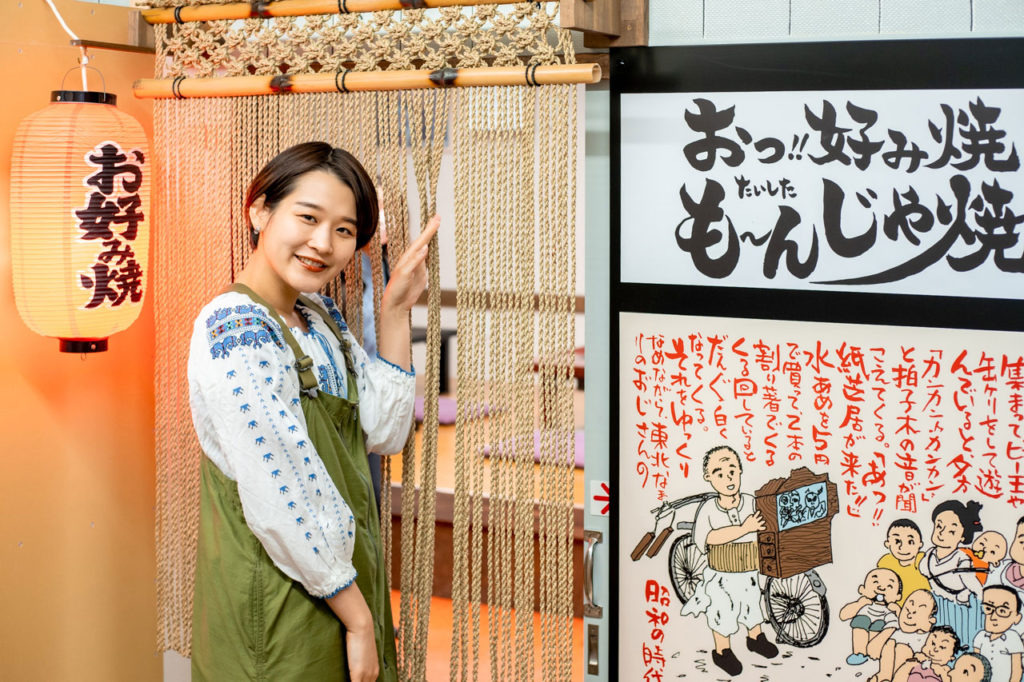 お好み焼
おっ!!好み焼
たいした
も〜んじゃ焼
集まってビー玉や
缶けりをして遊
んでいると
「カンカンカカカン」
と拍子木の音が聞
こえてくる。「あっ!!
紙芝居が来た!!」
水あめを5円
で買って、2本の
割り箸でくる
くる回していると
白く
なってくる。
それをゆっくり
なめながら、東北なま
りのおじさんの
昭和の時代